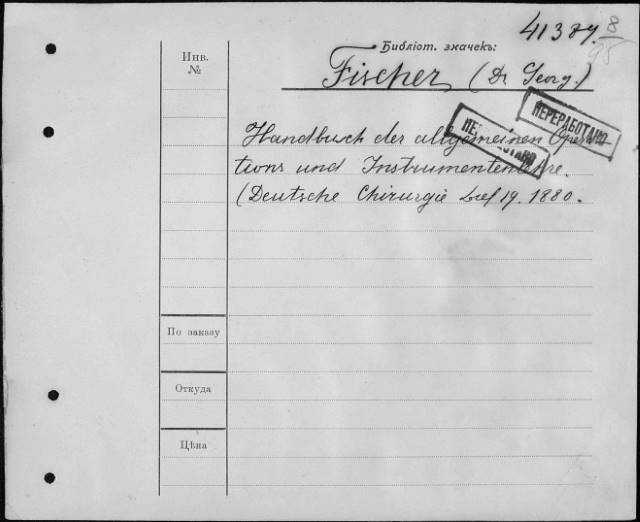 41387. 8
95
Библіот. значекъ:
Инв.
№
Fischer (Dr Georg.)
ПЕРЕРАБОТАНО
ПЕРЕРАБОТАНО
Handbuch der allgemeinen Opera-
tions und Instrumentenlehre.
(Deutsche Chirurgie Lief 19. 1880.
По заказу
Откуда
Цѣна